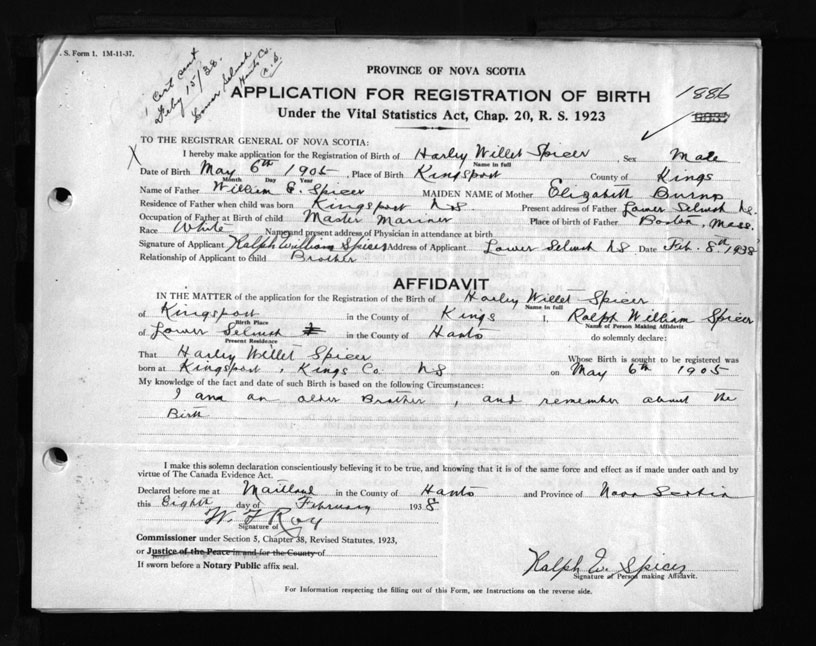 . S. Form 1. 1M-11-37.
1 Cert sent
Feby 15/38.
Lower Selmah
Hants Co.
N.S.
PROVINCE OF NOVA SCOTIA
APPLICATION FOR REGISTRATION OF BIRTH
1886
Under the Vital Statistics Act, Chap. 20, R. S. 1923
TO THE REGISTRAR GENERAL OF NOVA SCOTIA:
I hereby make application for the Registration of Birth of Harley Willet Spicer Sex Male
Name in full
X
Date of Birth May 6th 1905, Place of Birth Kingsport County of Kings
Month Day Year
Name of Father William E. Spicer MAIDEN NAME of Mother Elizabeth Burns
Residence of Father when child was born Kingsport NS Present address of Father Lower Selmah NS.
Occupation of Father at Birth of child Master Mariner Place of birth of Father Boston, Mass.
Race White Name and present address of Physician in attendance at birth
Signature of Applicant Ralph William Spicer Address of Applicant Lower Selmah NS Date Feb. 8th 1938
Relationship of Applicant to child Brother
AFFIDAVIT
IN THE MATTER of the application for the Registration of the Birth of Harley Willet Spicer
Name in full
of Kingsport in the County of Kings I, Ralph William Spicer
Birth Place Name of Person Making Affidavit
of Lower Selmah in the County of Hants do solemnly declare:
Present Residence
That Harley Willet Spicer Whose Birth is sought to be registered was
born at Kingsport, Kings Co. NS on May 6th 1905
My knowledge of the fact and date of such Birth is based on the following Circumstances:
I am an older Brother, and remember about the
Birth
I make this solemn declaration conscientiously believing it to be true, and knowing that it is of the same force and effect as if made under oath and by
virtue of The Canada Evidence Act.
Declared before me at Maitland in the County of Hants and Province of Nova Scotia
this Eighth day of February 1938
W. F. Roy
Signature of
Commissioner under Section 5, Chapter 38, Revised Statutes, 1923,
or Justice of the Peace in and for the County of
If sworn before a Notary Public affix seal.
Ralph W. Spicer
Signature of Person making Affidavit.
For Information respecting the filling out of this Form, see Instructions on the reverse side.